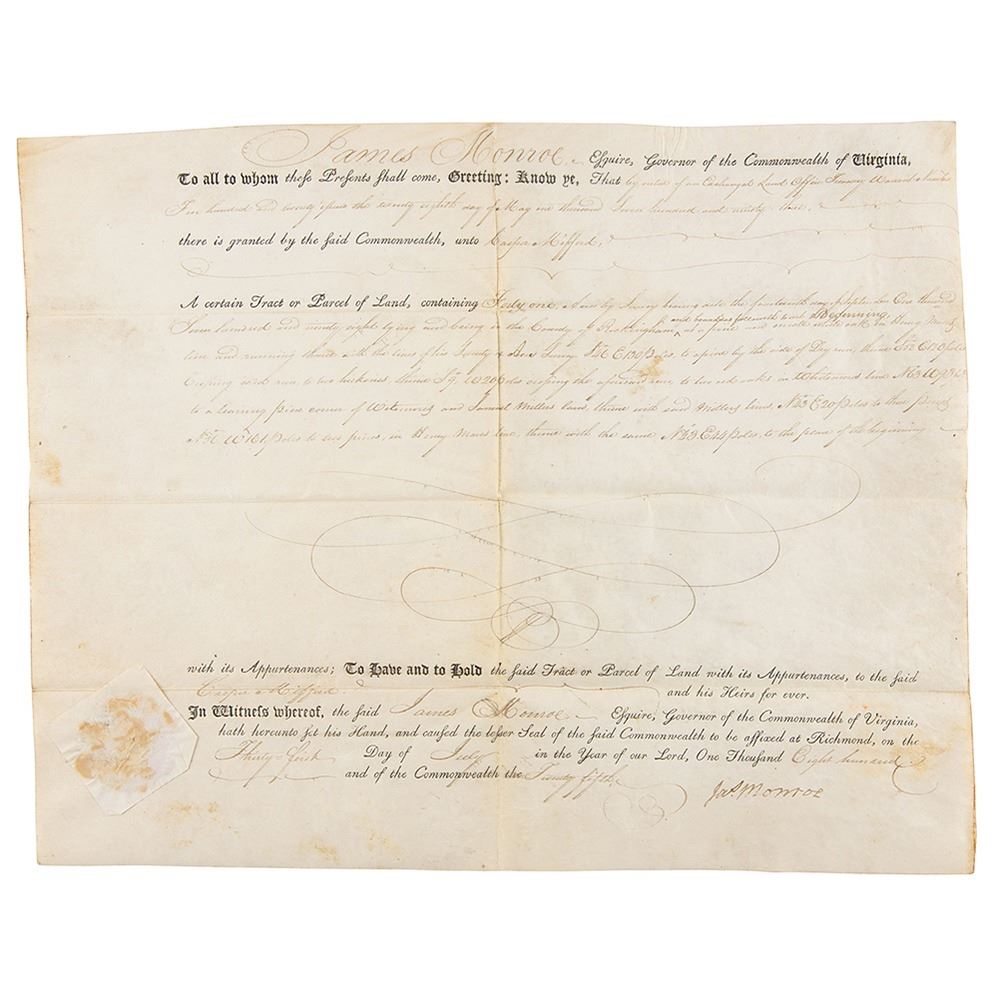 James Monroe Esquire, Governor of the Commonwealth of Virginia,
To all to whom these Presents shall come, Greeting: Know ye, That by virtue of an Exchanged Land Office Treasury Warrant
Five hundred and twenty issued the twenty eighth day of May one thousand Seven hundred and ninety three,
there is granted by the said Commonwealth, unto Casper Mifford,
A certain Tract or Parcel of Land, containing Forty one Acres by Survey bearing date the fourteenth day of September One thousand
Seven hundred and ninety eight lying and being in the County of Rockingham and bounded followeth to wit Beginning at a pine and white oak in Henry
line and running thence with the lines of his Survey E 130 Poles to a pine by the side of Dry run, thence
Crossing said run to two hickories thence W 20 Poles crossing the aforesaid run to two red oaks in Whitemores line
to a leaning pine corner of Wetemores and Samuel Millers land, thence with said Millers line, E 20 poles to three pines
W 161 Poles to two pines, in Henry line, thence with the same E 44 poles, to the place of the beginning
with its Appurtenances; To Have and to Hold the said Tract or Parcel of Land with its Appurtenances, to the said
Casper Mifford and his Heirs for ever.
In Witness whereof, the said James Monroe Esquire, Governor of the Commonwealth of Virginia,
hath hereunto set his Hand, and caused the lesser Seal of the said Commonwealth to be affixed at Richmond, on the
Thirty first Day of July in the Year of our Lord, One Thousand Eight hundred
and of the Commonwealth the Twenty fifth.
Jas. Monroe